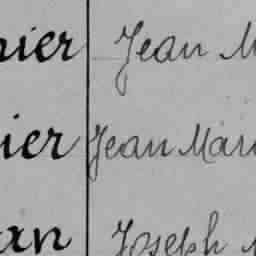 nier Jean M
nier Jean Mari
an Joseph